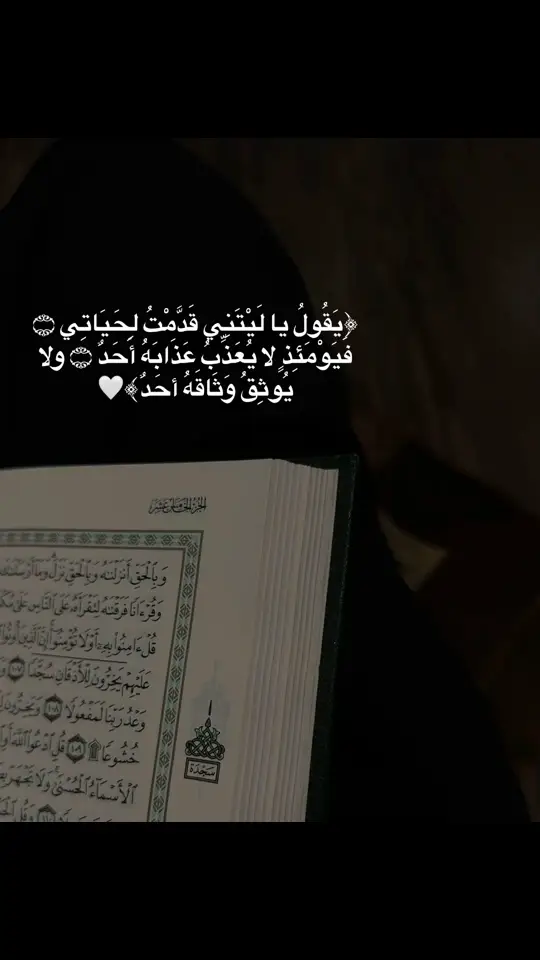 ﴿يَقُولُ يا لَيْتَنِي قَدَّمْتُ لِحَيَاتِي ۝
فيَوْمَئِذٍ لا يُعَذِّبُ عَذَابَهُ أحَدٌ ۝ ولا
يُوثِقُ وَثَاقَهُ أحَدٌ﴾🤍
الجزء الخامس عشر
وَبِٱلْحَقِّ أَنزَلْنَٰهُ وَبِٱلْحَقِّ نَزَلَ وَمَآ أَرْسَلْنَٰكَ
وَقُرْءَانًا فَرَقْنَٰهُ لِتَقْرَأَهُۥ عَلَى ٱلنَّاسِ عَلَىٰ
قُلْ ءَامِنُوا۟ بِهِۦٓ أَوْ لَا تُؤْمِنُوٓا۟ إِنَّ ٱلَّذِينَ أُوتُوا۟
عَلَيْهِمْ يَخِرُّونَ لِلْأَذْقَانِ سُجَّدًا ١٠٧
وَعْدُ رَبِّنَا لَمَفْعُولًا ١٠٨ وَيَخِرُّونَ
خُشُوعًا ۩ ١٠٩ قُلِ ٱدْعُوا۟ ٱللَّهَ أَوِ
ٱلْأَسْمَآءُ ٱلْحُسْنَىٰ وَلَا تَجْهَرْ
١١٠ وَقُلِ
سَجْدَة